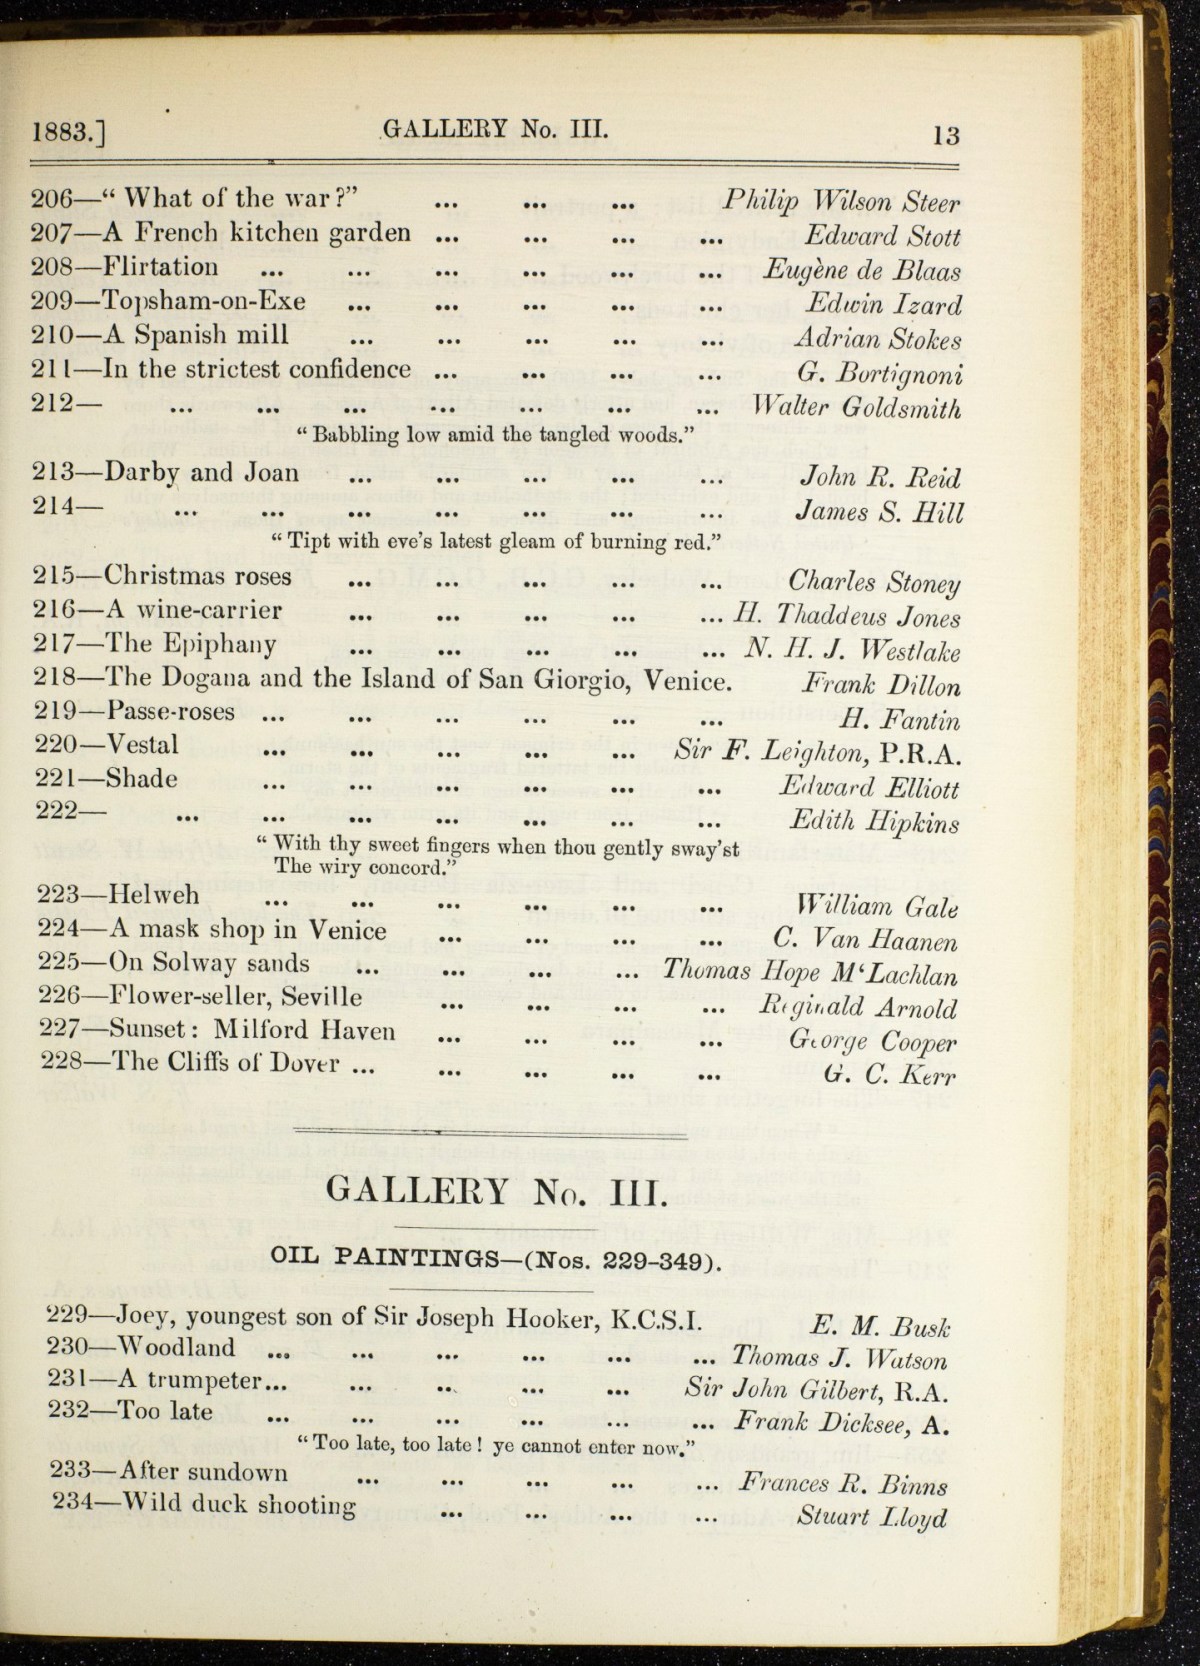 1883.] GALLERY No. III. 13
206—“ What of the war?” ... ... ... Philip Wilson Steer
207—A French kitchen garden ... ... ... ... Edward Stott
208—Flirtation ... ... ... ... ... ... Eugène de Blaas
209—Topsham-on-Exe ... ... ... ... ... Edwin Izard
210—A Spanish mill ... ... ... ... ... Adrian Stokes
211—In the strictest confidence ... ... ... ... G. Bortignoni
212— ... ... ... ... ... ... ... Walter Goldsmith
“ Babbling low amid the tangled woods.”
213—Darby and Joan ... ... ... ... ... John R. Reid
214— ... ... ... ... ... ... ... James S. Hill
“ Tipt with eve’s latest gleam of burning red.”
215—Christmas roses ... ... ... ... ... Charles Stoney
216—A wine-carrier ... ... ... ... ... H. Thaddeus Jones
217—The Epiphany ... ... ... ... ... N. H. J. Westlake
218—The Dogana and the Island of San Giorgio, Venice. Frank Dillon
219—Passe-roses ... ... ... ... ... ... H. Fantin
220—Vestal ... ... ... ... ... Sir F. Leighton, P.R.A.
221—Shade ... ... ... ... ... ... Edward Elliott
222— ... ... ... ... ... ... ... Edith Hipkins
“ With thy sweet fingers when thou gently sway’st
The wiry concord.”
223—Helweh ... ... ... ... ... ... William Gale
224—A mask shop in Venice ... ... ... ... C. Van Haanen
225—On Solway sands ... ... ... ... Thomas Hope M‘Lachlan
226—Flower-seller, Seville ... ... ... ... Reginald Arnold
227—Sunset: Milford Haven ... ... ... ... George Cooper
228—The Cliffs of Dover ... ... ... ... ... G. C. Kerr
GALLERY No. III.
OIL PAINTINGS—(Nos. 229-349).
229—Joey, youngest son of Sir Joseph Hooker, K.C.S.I. E. M. Busk
230—Woodland ... ... ... ... ... ... Thomas J. Watson
231—A trumpeter... ... ... ... ... Sir John Gilbert, R.A.
232—Too late ... ... ... ... ... ... Frank Dicksee, A.
“ Too late, too late ! ye cannot enter now.”
233—After sundown ... ... ... ... ... Frances R. Binns
234—Wild duck shooting ... ... ... ... Stuart Lloyd